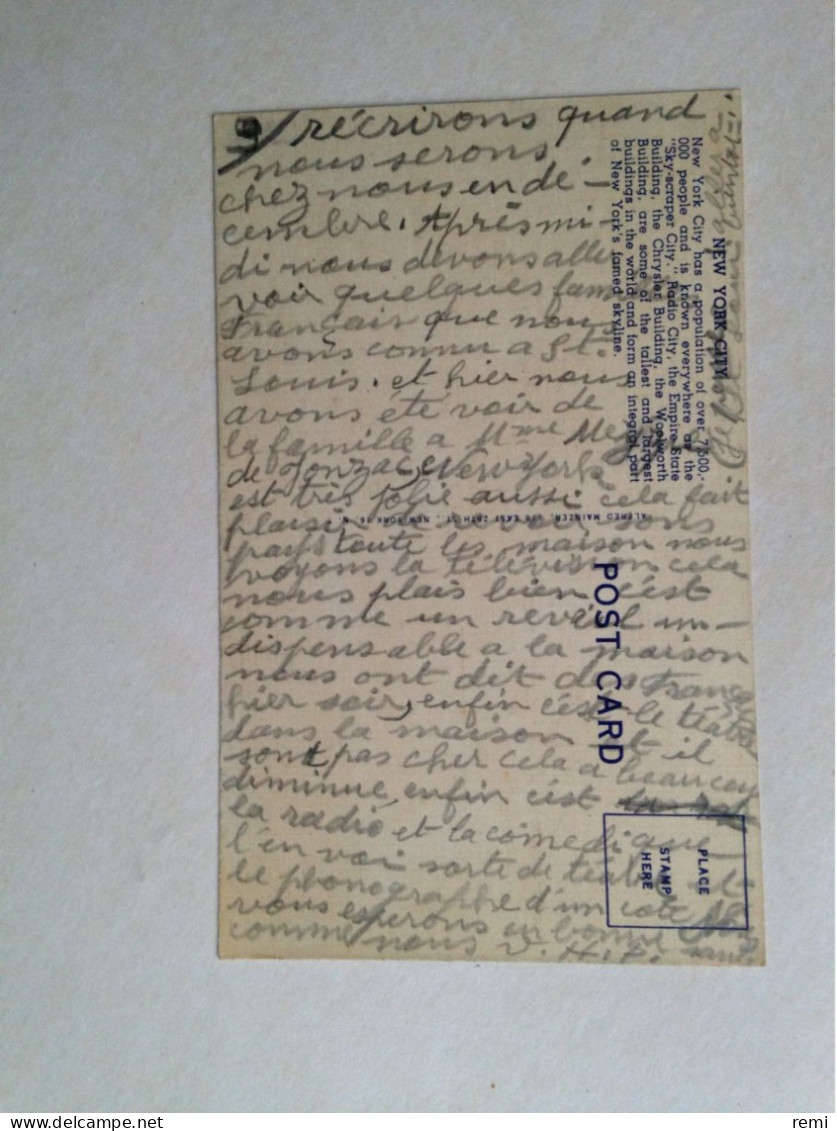 9/ récrirons quand
nous serons
chez nous en dé-
cembre. Après mi-
di nous devons aller
voir quelques fam
Français que nous
avons connu a St.
Louis. et hier nous
avons été voir de
la famille a Mme
de Jonzac, New York
est très jolie aussi cela fait
plaisir de
pays toute les maison nous
voyons la télévision cela
nous plais bien c'est
comme un reveil in-
dispensable a la maison
nous ont dit des Français
hier soir, enfin c'est le téatre
dans la maison et il
sont pas cher cela a beaucoup
diminue enfin c'est
la radio et la comedi que
l'en voi sorte de téatre et
le phonographe d'un coté
vous esperons en bonne santé
comme nous V. H. P.
NEW YORK CITY
New York City has a population of over 7,500,-
000 people and is known everywhere as the
"Sky-scraper City." Radio City, the Empire State
Building, the Chrysler Building, the Woolworth
Building, are some of the tallest and largest
buildings in the world and form an integral part
of New York's famed skyline.
ALFRED MAINZER, 118 EAST 28TH ST., NEW YORK 16, N.
POST CARD
PLACE
STAMP
HERE
remi